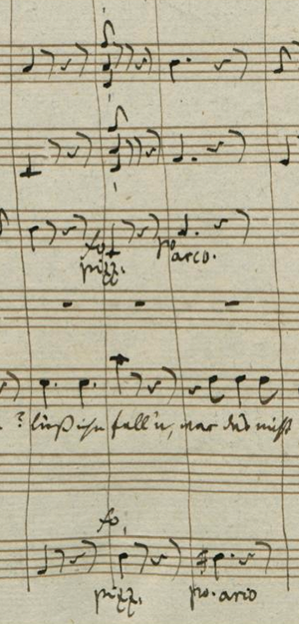 fo
pizz.
po arco.
? ließ ihn fall'n, war das nicht
fo.
pizz.
po. arco